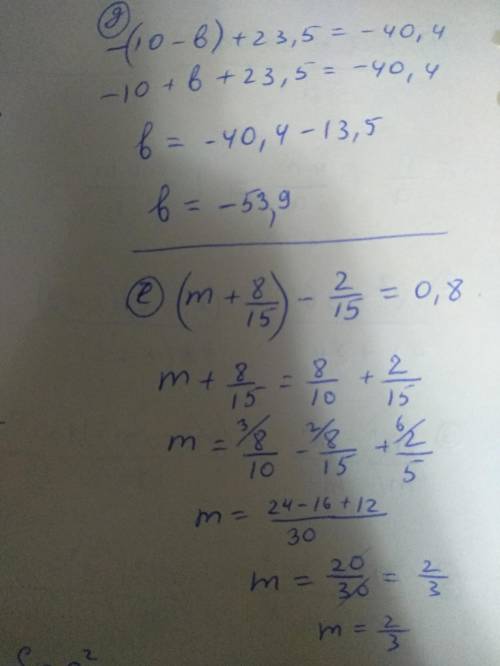 д
-(10 - в) + 23,5 = -40,4
-10 + в + 23,5 = -40,4
в = -40,4 - 13,5
в = -53,9
е (m + 8/15) - 2/15 = 0,8
m + 8/15 = 8/10 + 2/15
m = 3/ 8/10 - 2/ 8/15 + 6/ 2/5
m = 24-16+12/30
m = 20/30 = 2/3
m = 2/3